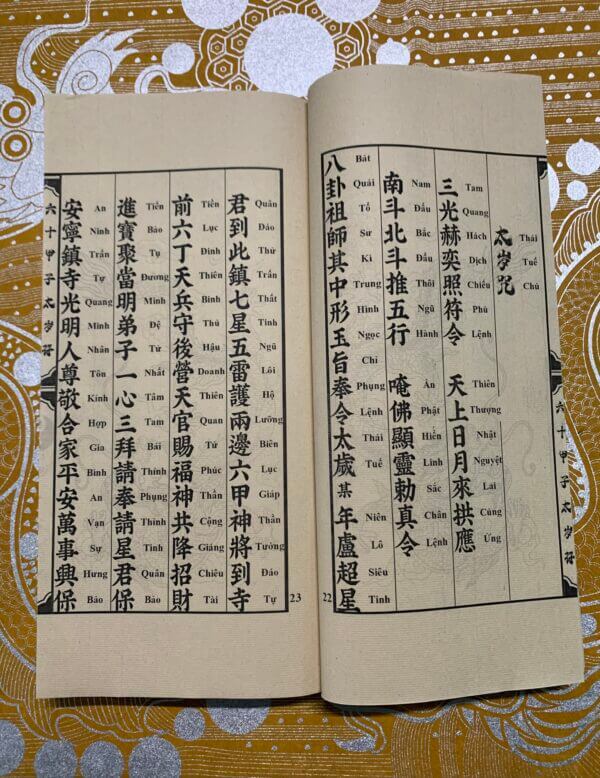 太岁咒
Thái Tuế Chú
三光赫奕照符令 天上日月來拱應
Tam Quang Hách Dịch Chiếu Phù Lệnh Thiên Thượng Nhật Nguyệt Lai Củng Ứng
南斗北斗推五行 唵佛顯靈勅真令
Nam Đẩu Bắc Đẩu Thôi Ngũ Hành Án Phật Hiển Linh Sắc Chân Lệnh
八卦祖師其中形玉旨奉令太歲某年盧超星
Bát Quái Tổ Sư Kì Trung Hình Ngọc Chỉ Phụng Lệnh Thái Tuế Niên Lô Siêu Tinh
六十甲子太岁符
22
君到此鎮七星五雷護兩邊六甲神將到寺
Quân Đáo Thử Trấn Thất Tinh Ngũ Lôi Hộ Lưỡng Biên Lục Giáp Thần Tướng Đáo Tự
前六丁天兵守後營天官賜福神共降招財
Tiền Lục Đinh Thiên Binh Thủ Hậu Doanh Thiên Quan Tứ Phúc Thần Cộng Giáng Chiêu Tài
進寶聚當明弟子一心三拜請奉請星君保
Tiến Bảo Tụ Đương Minh Đệ Tử Nhất Tâm Tam Bái Thỉnh Phụng Thỉnh Tinh Quân Bảo
安寧鎮寺光明人尊敬合家平安萬事興保
An Ninh Trấn Tự Quang Minh Nhân Tôn Kính Hợp Gia Bình An Vạn Sự Hưng Bảo
六十甲子太岁符
23